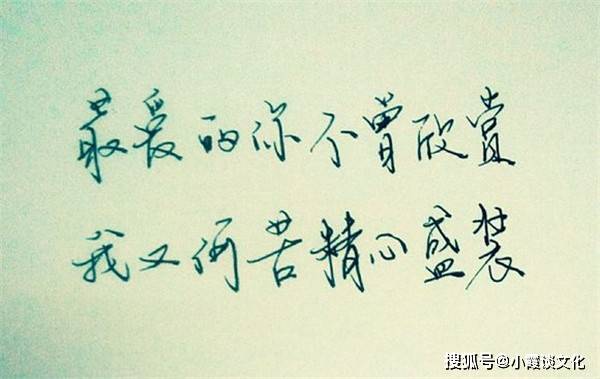 最爱的你不曾欣赏
我又何苦精心盛装
搜狐号@小霞谈文化